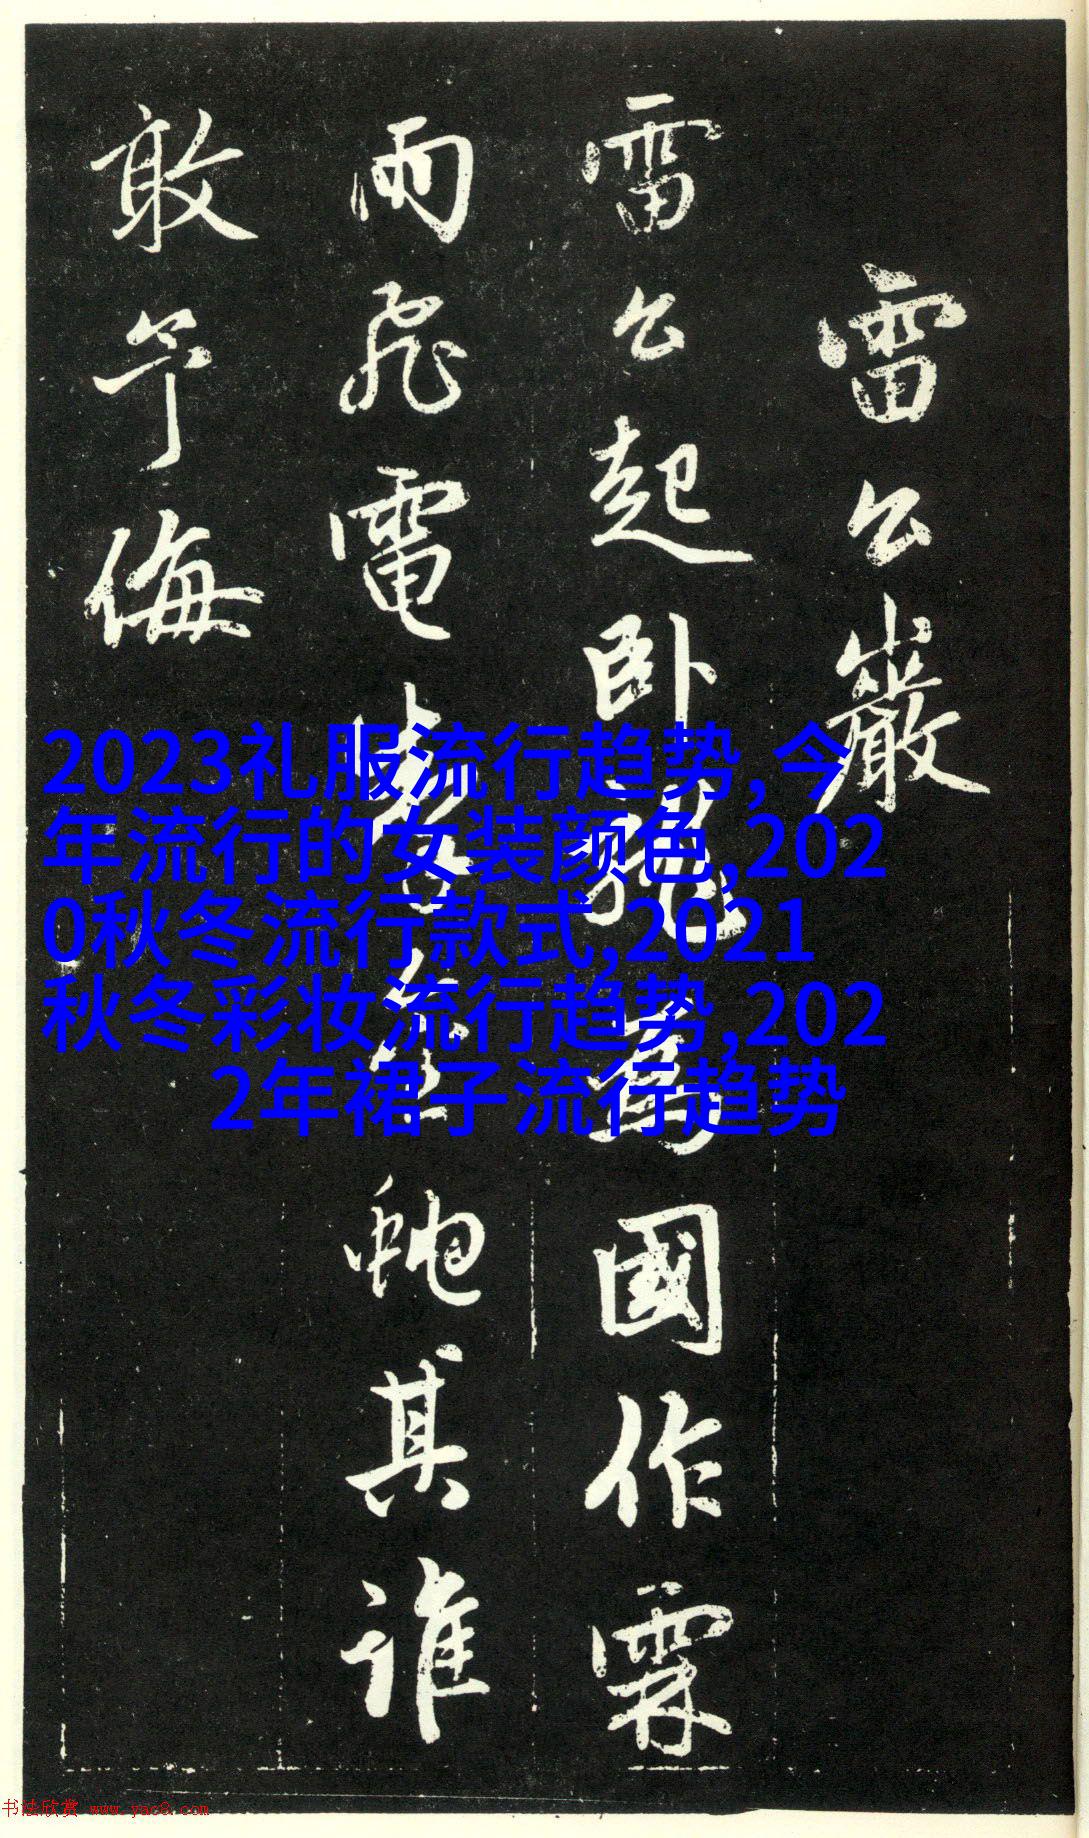 雷公巖
雷公起卧龍為國作霖
雨飛電虵其誰
敢予侮
2023礼服流行趋势,今
年流行的女装颜色,202
0秋冬流行款式,2021
秋冬彩妆流行趋势,202
2年裙子流行趋势
书法欣赏 www.yac8.com